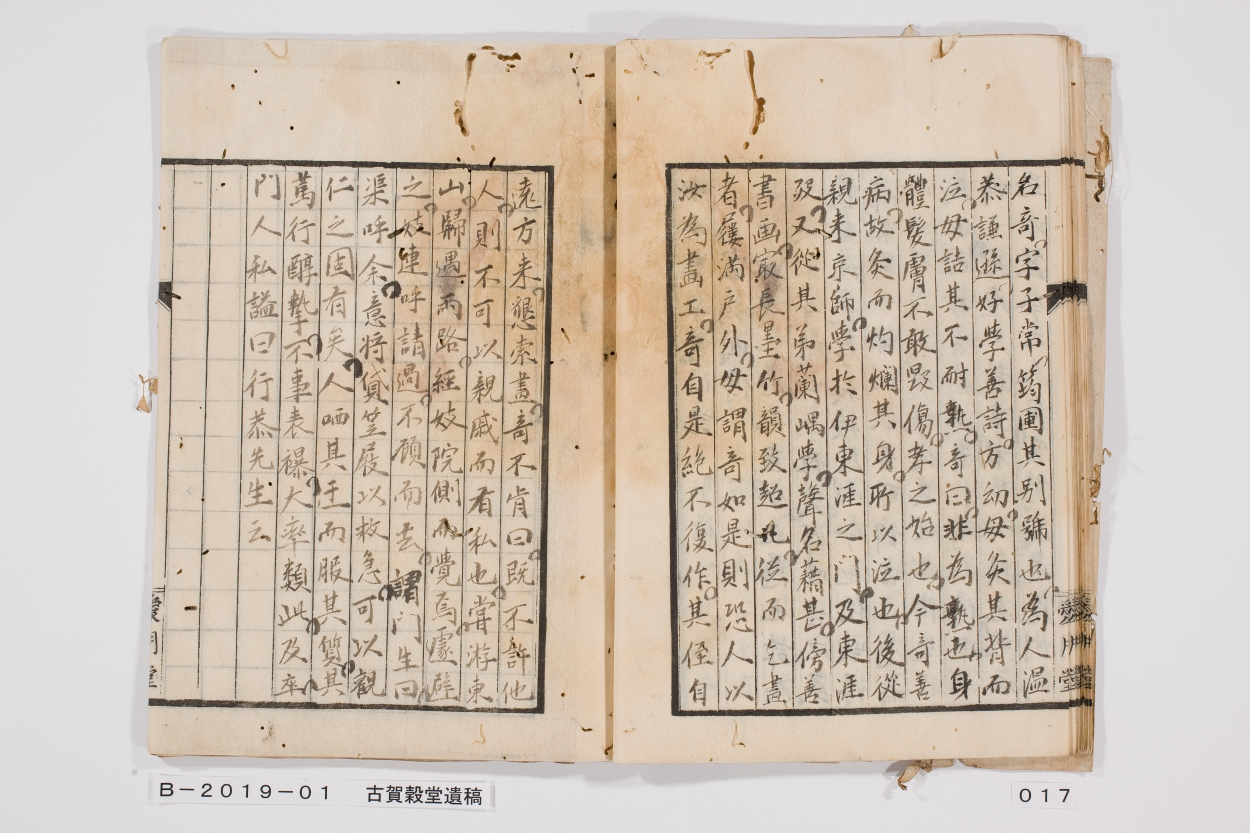 名奇字子常筠圃其別號也為人溫
恭謙遜好學善詩方幼母灸其背而
泣母詰其不耐熱奇曰非為熱也身
體髮膚不敢毀傷孝之始也今奇善
病故灸而灼爛其身所以泣也後從
親来京師學於伊東涯之門及東涯
歿又從其弟蘭嵎學聲名藉甚傍善
書画㝡長墨竹韻致超凡從而乞畫
者屨満戸外母謂奇如是則恐人以
汝為畫工奇自是絶不復作其侄自
遠方来懇索畫奇不肯曰既不許他
人則不可以親戚而有私也嘗游東
山歸遇雨路經妓院側而覺焉遽避
之妓連呼請過不顧而去謂門生曰
渠呼余意将貸笠屐以救急可以觀
仁之固有矣人哂其迂而服其質其
篤行醇摯不事表襮大率類此及卒
門人私謚曰行恭先生云
B－2019－01　古賀穀堂遺稿
017